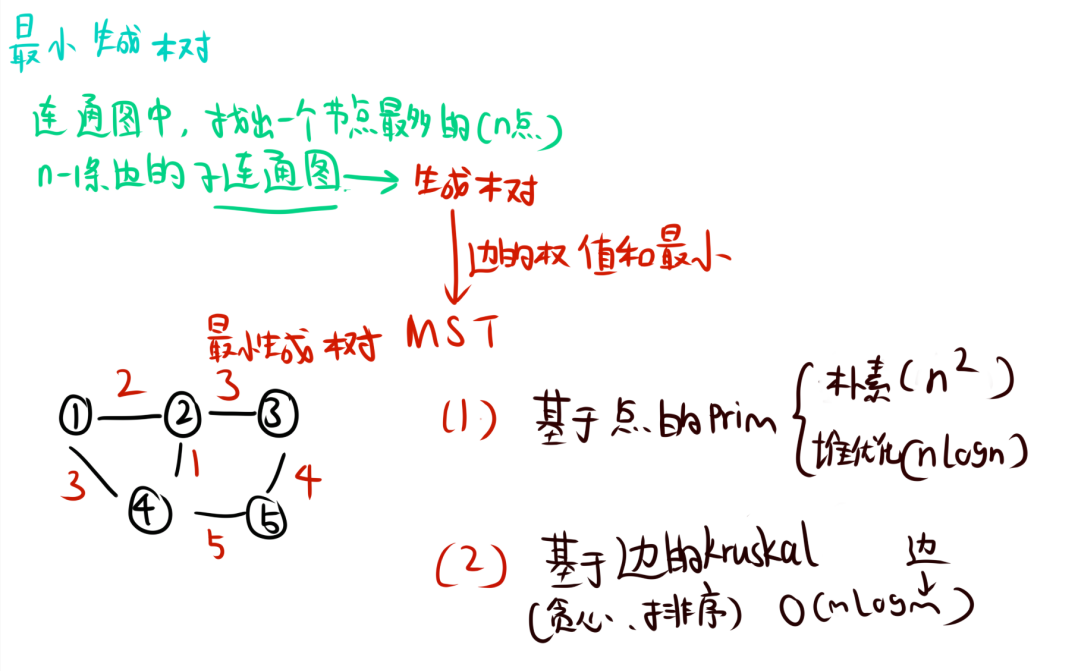 最小生成树
连通图中，找出一个节点最多的(n点)
n-1条边的子连通图→生成树
边的权值和最小
最小生成树 MST
2 3
① ② ③
3 1 4
④ ⑤
5
(1) 基于点的prim
朴素(n²)
堆优化(nlogn)
(2) 基于边的kruskal 边
(贪心、排序) O(mlogm)